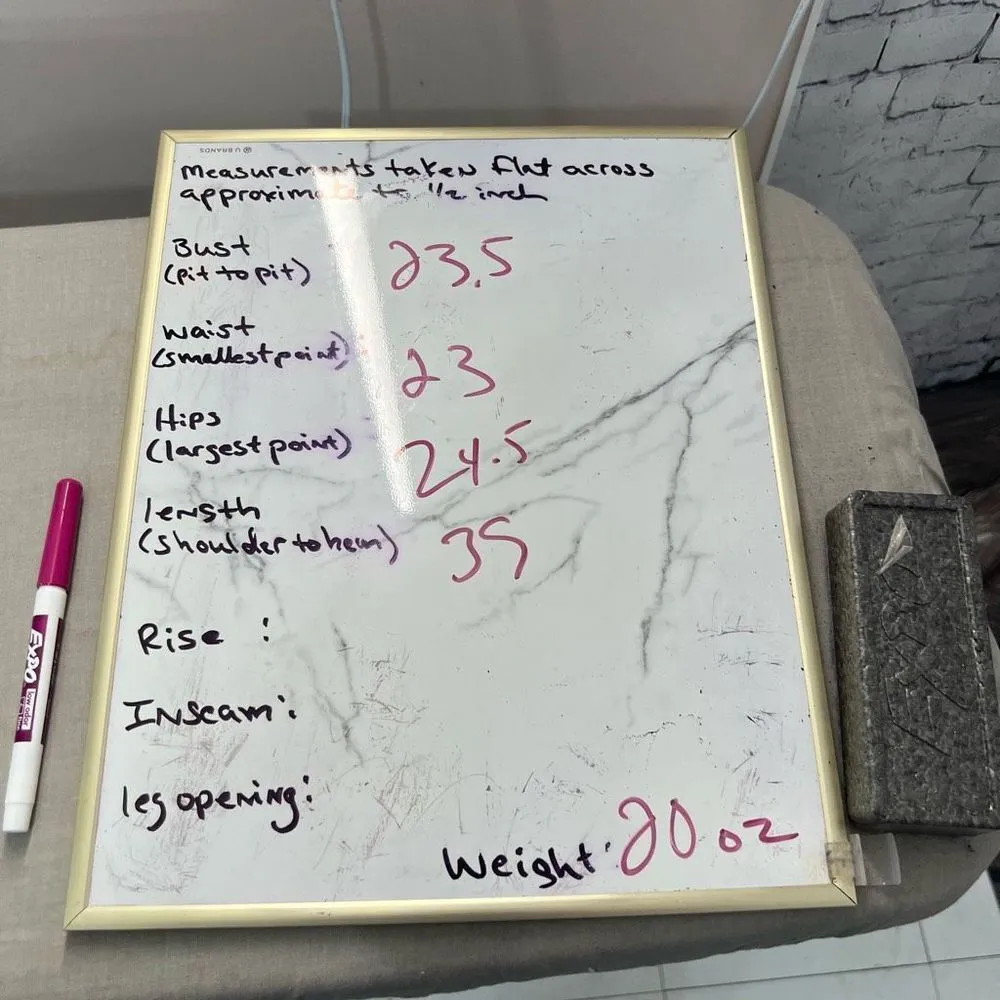 ® U BRANDS
measurements taken flat across
approximate to 1/2 inch
Bust
(pit to pit)
23.5
waist
(smallest point)
23
Hips
(largest point)
24.5
length
(shoulder to hem)
39
Rise :
Inseam:
leg opening:
Weight: 20 oz
EXPO
low odor